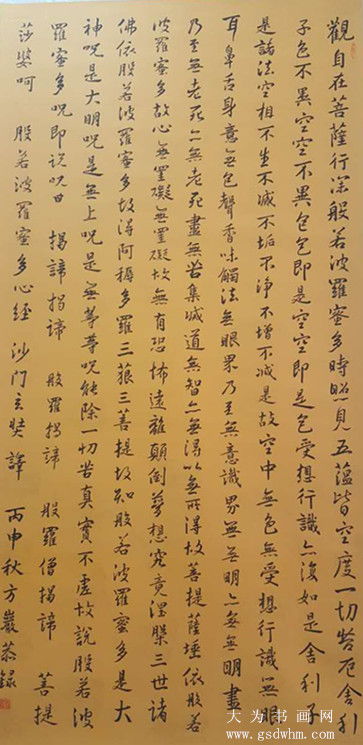 觀自在菩薩行深般若波羅蜜多時照見五蘊皆空度一切苦厄舍利
子色不異空空不異色色即是空空即是色受想行識亦復如是舍利子
是諸法空相不生不滅不垢不淨不增不減是故空中無色無受想行識無眼
耳鼻舌身意無色聲香味觸法無眼界乃至無意識界無無明亦無無明盡
乃至無老死亦無老死盡無苦集滅道無智亦無得以無所得故菩提薩埵依般若
波羅蜜多故心無罣礙無罣礙故無有恐怖遠離顛倒夢想究竟涅槃三世諸
佛依般若波羅蜜多故得阿耨多羅三藐三菩提故知般若波羅蜜多是大
神呪是大明呪是無上呪是無等等呪能除一切苦真實不虛故說般若波
羅蜜多呪即說呪曰 揭諦揭諦 般羅揭諦 般羅僧揭諦 菩提
莎婆呵 般若波羅蜜多心經 沙門玄奘譯 丙申秋方巖恭錄
大为书画网
www.gsdwhm.com